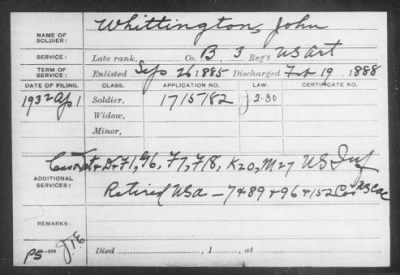 NAME OF SOLDIER: Whittington, John
SERVICE: Late rank, Co. B 3 Reg't US Art
TERM OF SERVICE: Enlisted Sep 26 1885 Discharged Feb 19, 1888
DATE OF FILING. CLASS. APPLICATION NO. LAW. CERTIFICATE NO.
1932 Ap 1 Soldier, 1715782 J 2-30
Widow,
Minor,
ADDITIONAL SERVICES: D, F1, G6, F7, F18, K20, M27 US Inf
Retired USA - 74 89 + 96 + 152 Co
REMARKS:
Died , 1 , at